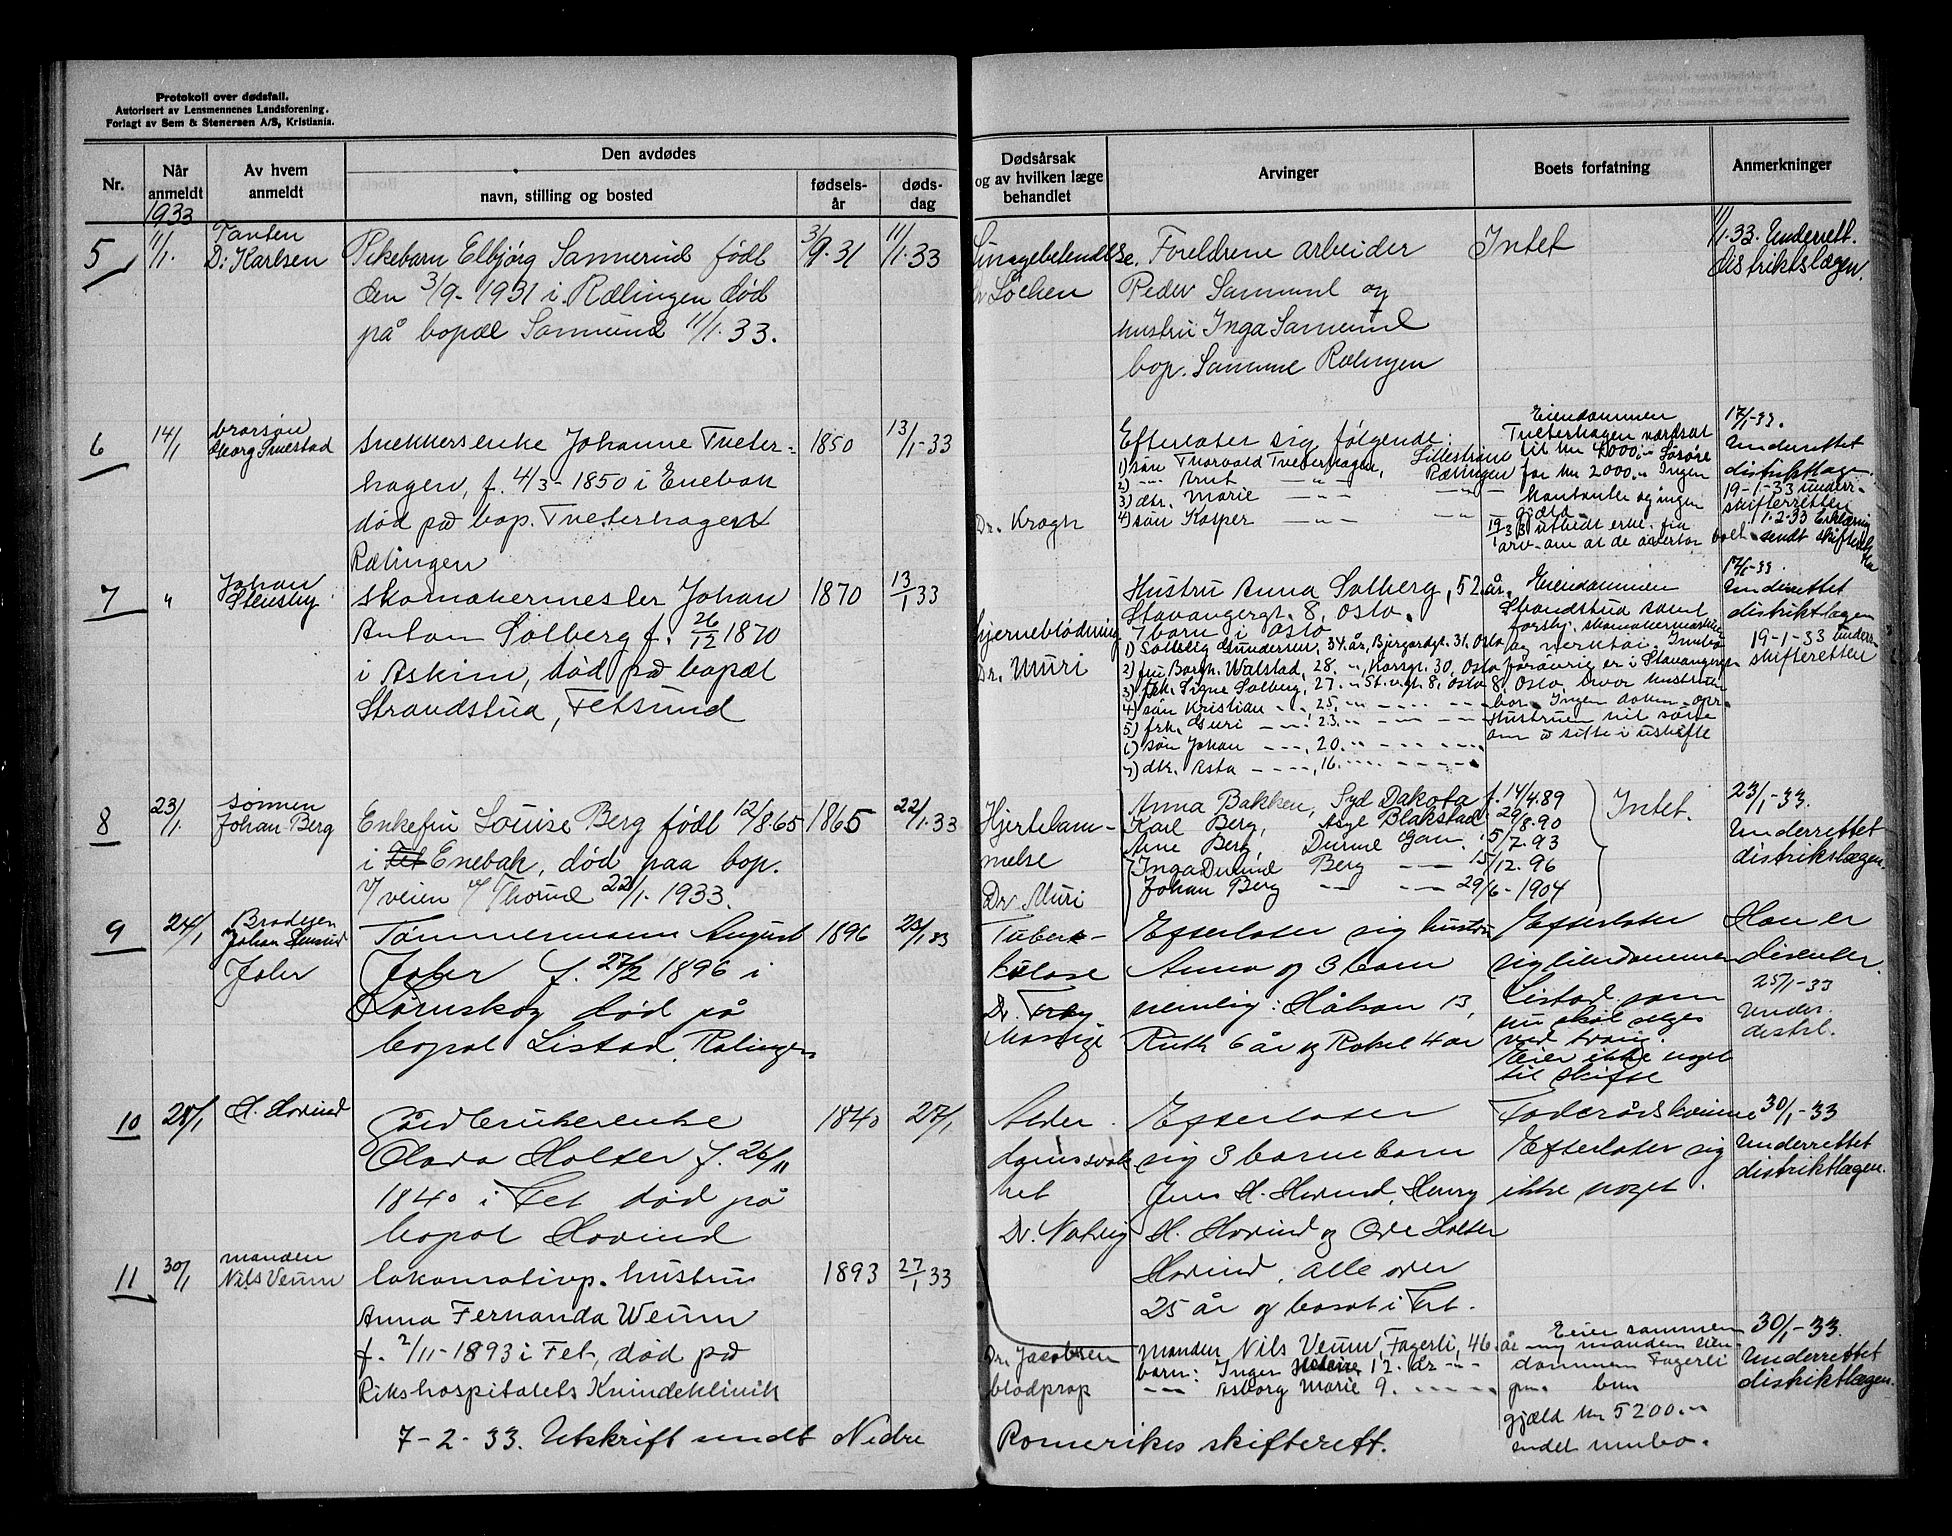 Protokoll over dødsfall.
Autorisert av Lensmennenes Landsforening.
Forlagt av Sem & Stenersen A/S, Kristiania.
Nr.
Når anmeldt
Av hvem anmeldt
Den avdødes
navn, stilling og bosted
fødsels-år
døds-dag
Dødsårsak og av hvilken læge behandlet
Arvinger
Boets forfatning
Anmerkninger
1933
5
11/1.
Tanten
D: Karlsen
Pikebarn Elbjørg Sannerud født
den 3/9-1931 i Rælingen død
på bopæl 11/1.33.
3/9.31
11/1.33
Løchen
Foreldrene arbeider
Peder og
hustru Inga
bop. Rælingen
Intet
11/1.33. Underrett.
distriktslægen.
6
14/1
brorsøn
Georg
snekkersenke Johanne Tveter-
hagen, f. 4/3-1850 i Enebak
død på bop. Tveterhagen
Rælingen
1850
13/1-33
Dr. Kragh
Efterlater sig følgende:
1) søn Thorvald Tveterhagen, Lillestrøm
2) -"- Knut -"- Rælingen
3) dtr. Marie - - -
4) søn Kasper - " -
Eiendommen
Tveterhagen værdsat
til kr 4000.- Løsøre
for kr 2000.- Ingen
kontanter og ingen
gjæld.
17/1-33.
Underrettet
distriktlægen.
19-1-33 underr.
skifteretten
1-2-33 Erklæring
sendt skifter.
7
"
Johan
Stensby
skomakermester Johan
Anton Solberg f. 26/12 1870
i Askim, død på bopæl
Strandstua, Fetsund
1870
13/1 33
hjerneblødning
Dr. Muri
Hustru Anna Solberg, 52 år,
Stavangergt. 8, Oslo.
7 barn i Oslo
1) Solveig Gundersen, 34 år, Oslo
2) fru Borgh. Walstad, 28 - ", Korsgt. 30, Oslo
3) frk. Signe Solberg, 27 - " St.v.gt 8, Oslo
4) søn Kristian - - 25, -
5) frk. Guri - - 23 -
6) søn Johan - - -, 20 -
7) dtr. Asta - - - -, 16 -
Eiendommen
Strandstua samt
forskj. skomakermaskiner
og verktøi. Innbo
forøvrig er i Stavangergt
8, Oslo hvor hustruen
bor. Ingen
Hustruen vil søke
om å sitte i uskifte
17/1-33.
Underrettet
distriktlægen
19-1-33 underr.
skifteretten
8
23/1.
sønnen
Johan Berg
Enkefru Louise Berg født 12/8.65
i Fet Enebak, død paa bop.
v/ veien v/ 22/1.1933.
1865
22/1.33
Hjertelam-
melse
Dr Muri
Anna Bakken, Syd Dakota f. 14/4.89
Karl Berg, Blakstad 29/8.90
Arne Berg, Gan 5/7.93
Inga Berg - - 15/12.96
Johan Berg - - 29/6-1904
Intet.
23/1-33.
Underrettet
distrikslægen.
9
24/1
Broderen
Johan
Joler
Tømmermann August
Joler f. 27/2 1896 i
Lørenskog død på
bopæl Listad, Rælingen
1896
23/1 33
Tuberk-
kulose
Dr.
Efterlater sig hustru
Anna og 3 barn
nemlig: Håkon 13,
Ruth 6 år og Rakel 4 år
Efterlater
sig eiendommen
Listad som
nu skal selges
ved tvang.
Eier ikke noget
til skifte
Han er
disenter.
25/1-33
Under.
distrl.
10
28/1
H. Hovind
Gårdbrukerenke
Olava Holter f. 26/11
1840 i Fet død på
bopæl Hovind
1840
27/1
Alder-
domssvak-
het
Dr. Natvig
Efterlater
sig 3 barnebarn
Jens H. Hovind, Henry
H. Hovind og Ole Holter
Hovind, alle over
25 år og bosat i Fet.
Føderådskvinne
Efterlater sig
ikke noget.
30/1-33
Underrettet
distriktlægen.
11
30/1
manden
Nils Veum
lokomotivp. hustru
Anna Fernanda Weum
f. 2/11-1893 i Fet, død på
Rikshospitalets Kvindeklinik
7-2-33. Utskrift sendt Nedre Romerikes skifterett.
1893
27/1 33
Dr. Jacobsen
blodprop
manden Nils Veum, Fagerli, 46 år
barn: Inger 12 år - "-
- - - Asborg Marie 9. - - -
Eier sammen
m/ manden eien-
dommen Fagerli
gjæld kr 5200.-
30/1-33.
Underrettet
distriktlægen.